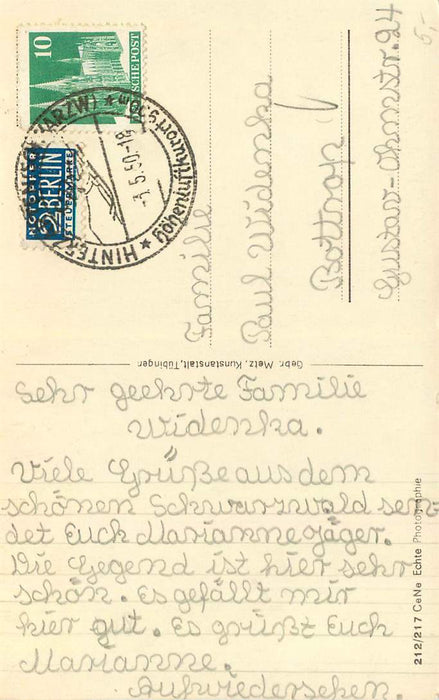 10
DEUTSCHE POST
NOTOPFER
2 BERLIN
STEUERMARKE
HINTERZARTEN (SCHWARZW)
Höhenluftkurort 900m
-1.5.50-18
5,-
Familie
Paul Widenka
Bottrop
Gustav-Ohmstr. 24
Gebr. Metz, Kunstanstalt, Tübingen
Sehr geehrte Familie
Widenka.
Viele Grüße aus dem
schönen Schwarzwald sen-
det Euch Marianne Jäger.
Die Gegend ist hier sehr
schön. Es gefällt mir
hier gut. Es grüßt Euch
Marianne.
Aufwiedersehen.
212/217 CeNe Echte Photographie